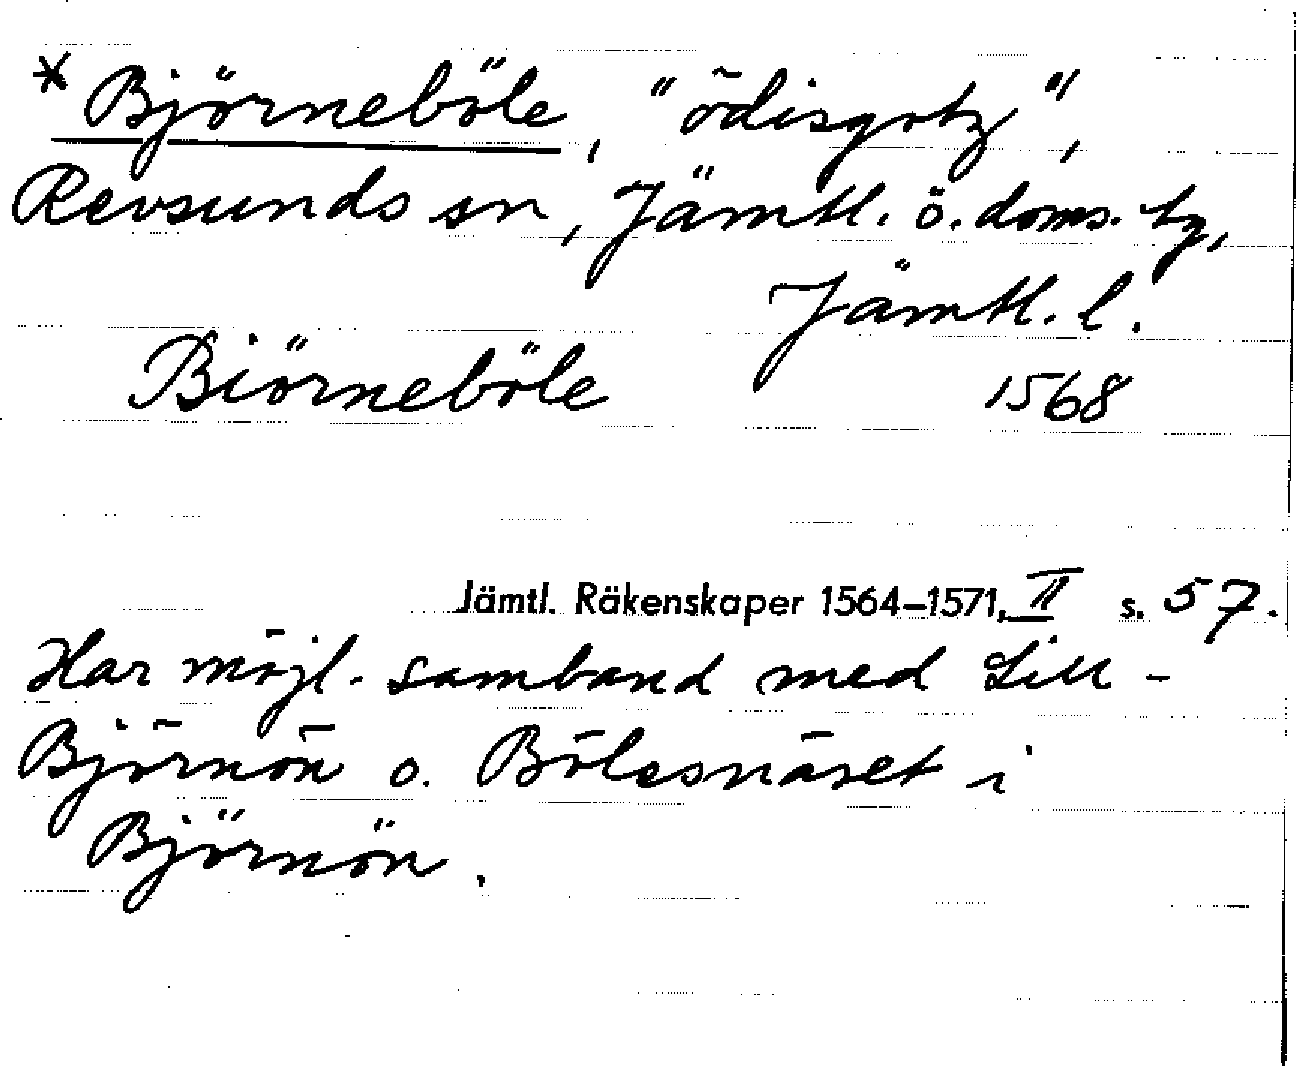 * Björneböle, "ödisgotz",
Revsunds sn, Jämtl. ö. doms. tg,
Jämtl. l.
Biörneböle 1568
Jämtl. Räkenskaper 1564–1571, II s. 57.
Har möjl. samband med Lill-
Björnön o. Bölesnäset i
Björnön.